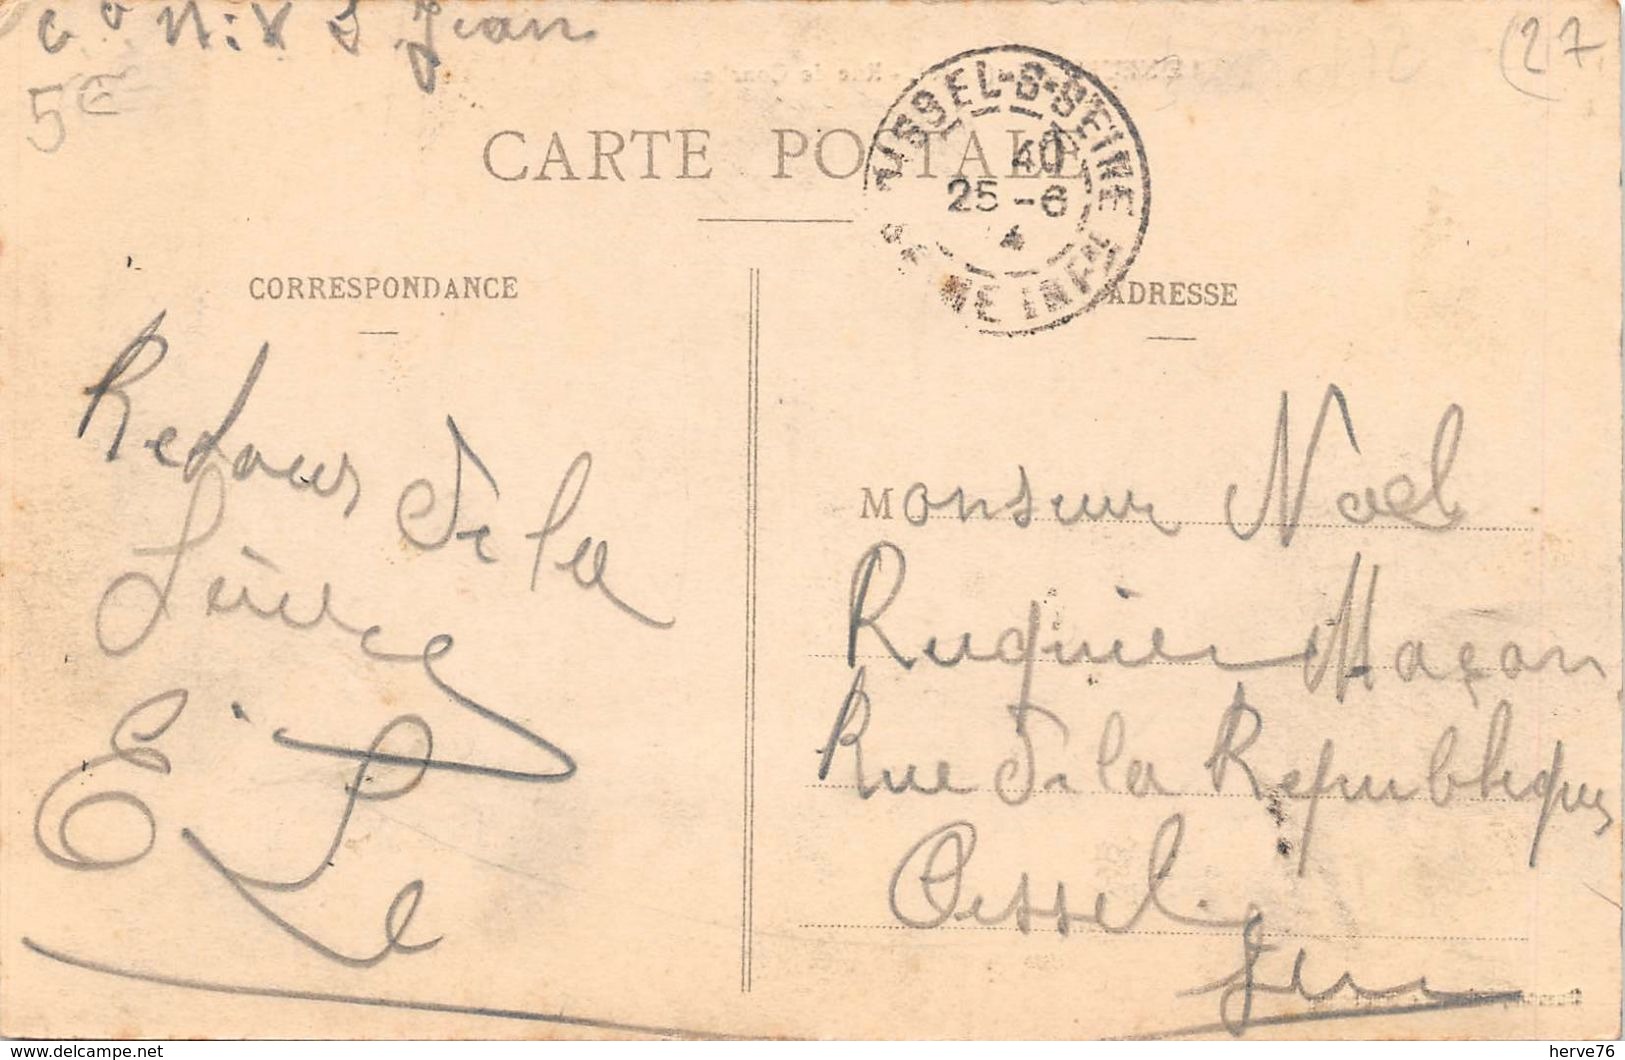 Jean
27
5e
CARTE POSTALE
OISSEL-S-SEINE
40
25-6
SEINE INFRE
CORRESPONDANCE
ADRESSE
Retour de la
E.
Le
Monsieur Noel
Ruquier Maçon
Rue de la République
Oissel
delcampe.net
herve76